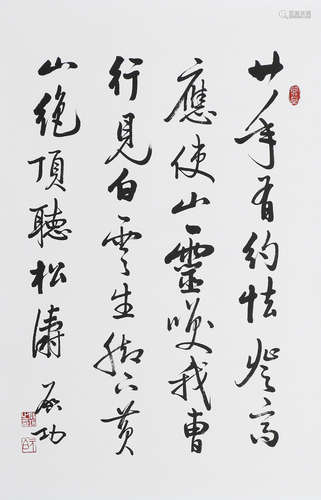 廿年有約怯登高
應使山靈笑我曹
行見白雲生腳下黃
山絕頂聽松濤 啟功